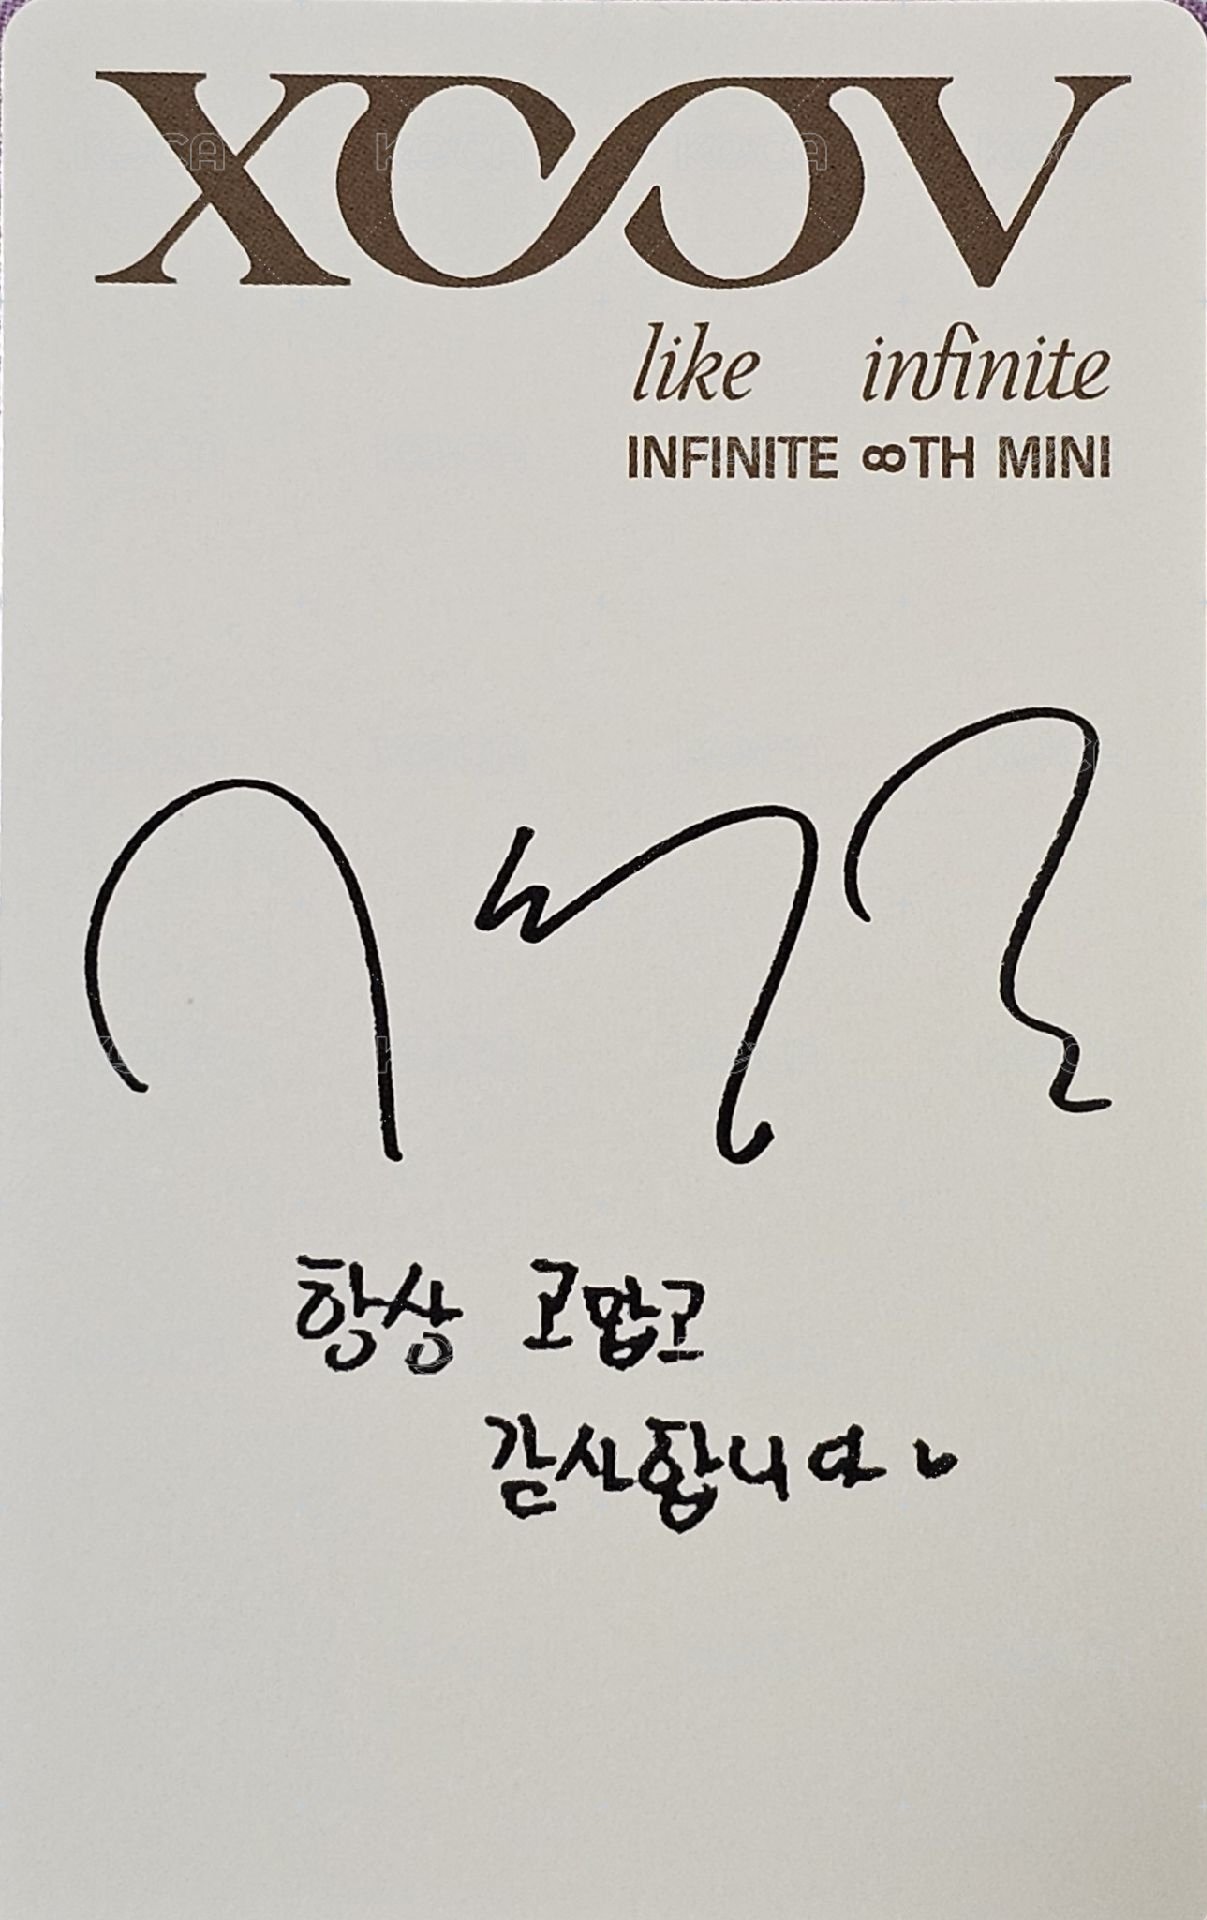 XOOV
like infinite
INFINITE ∞TH MINI
항상 고맙고
감사합니다